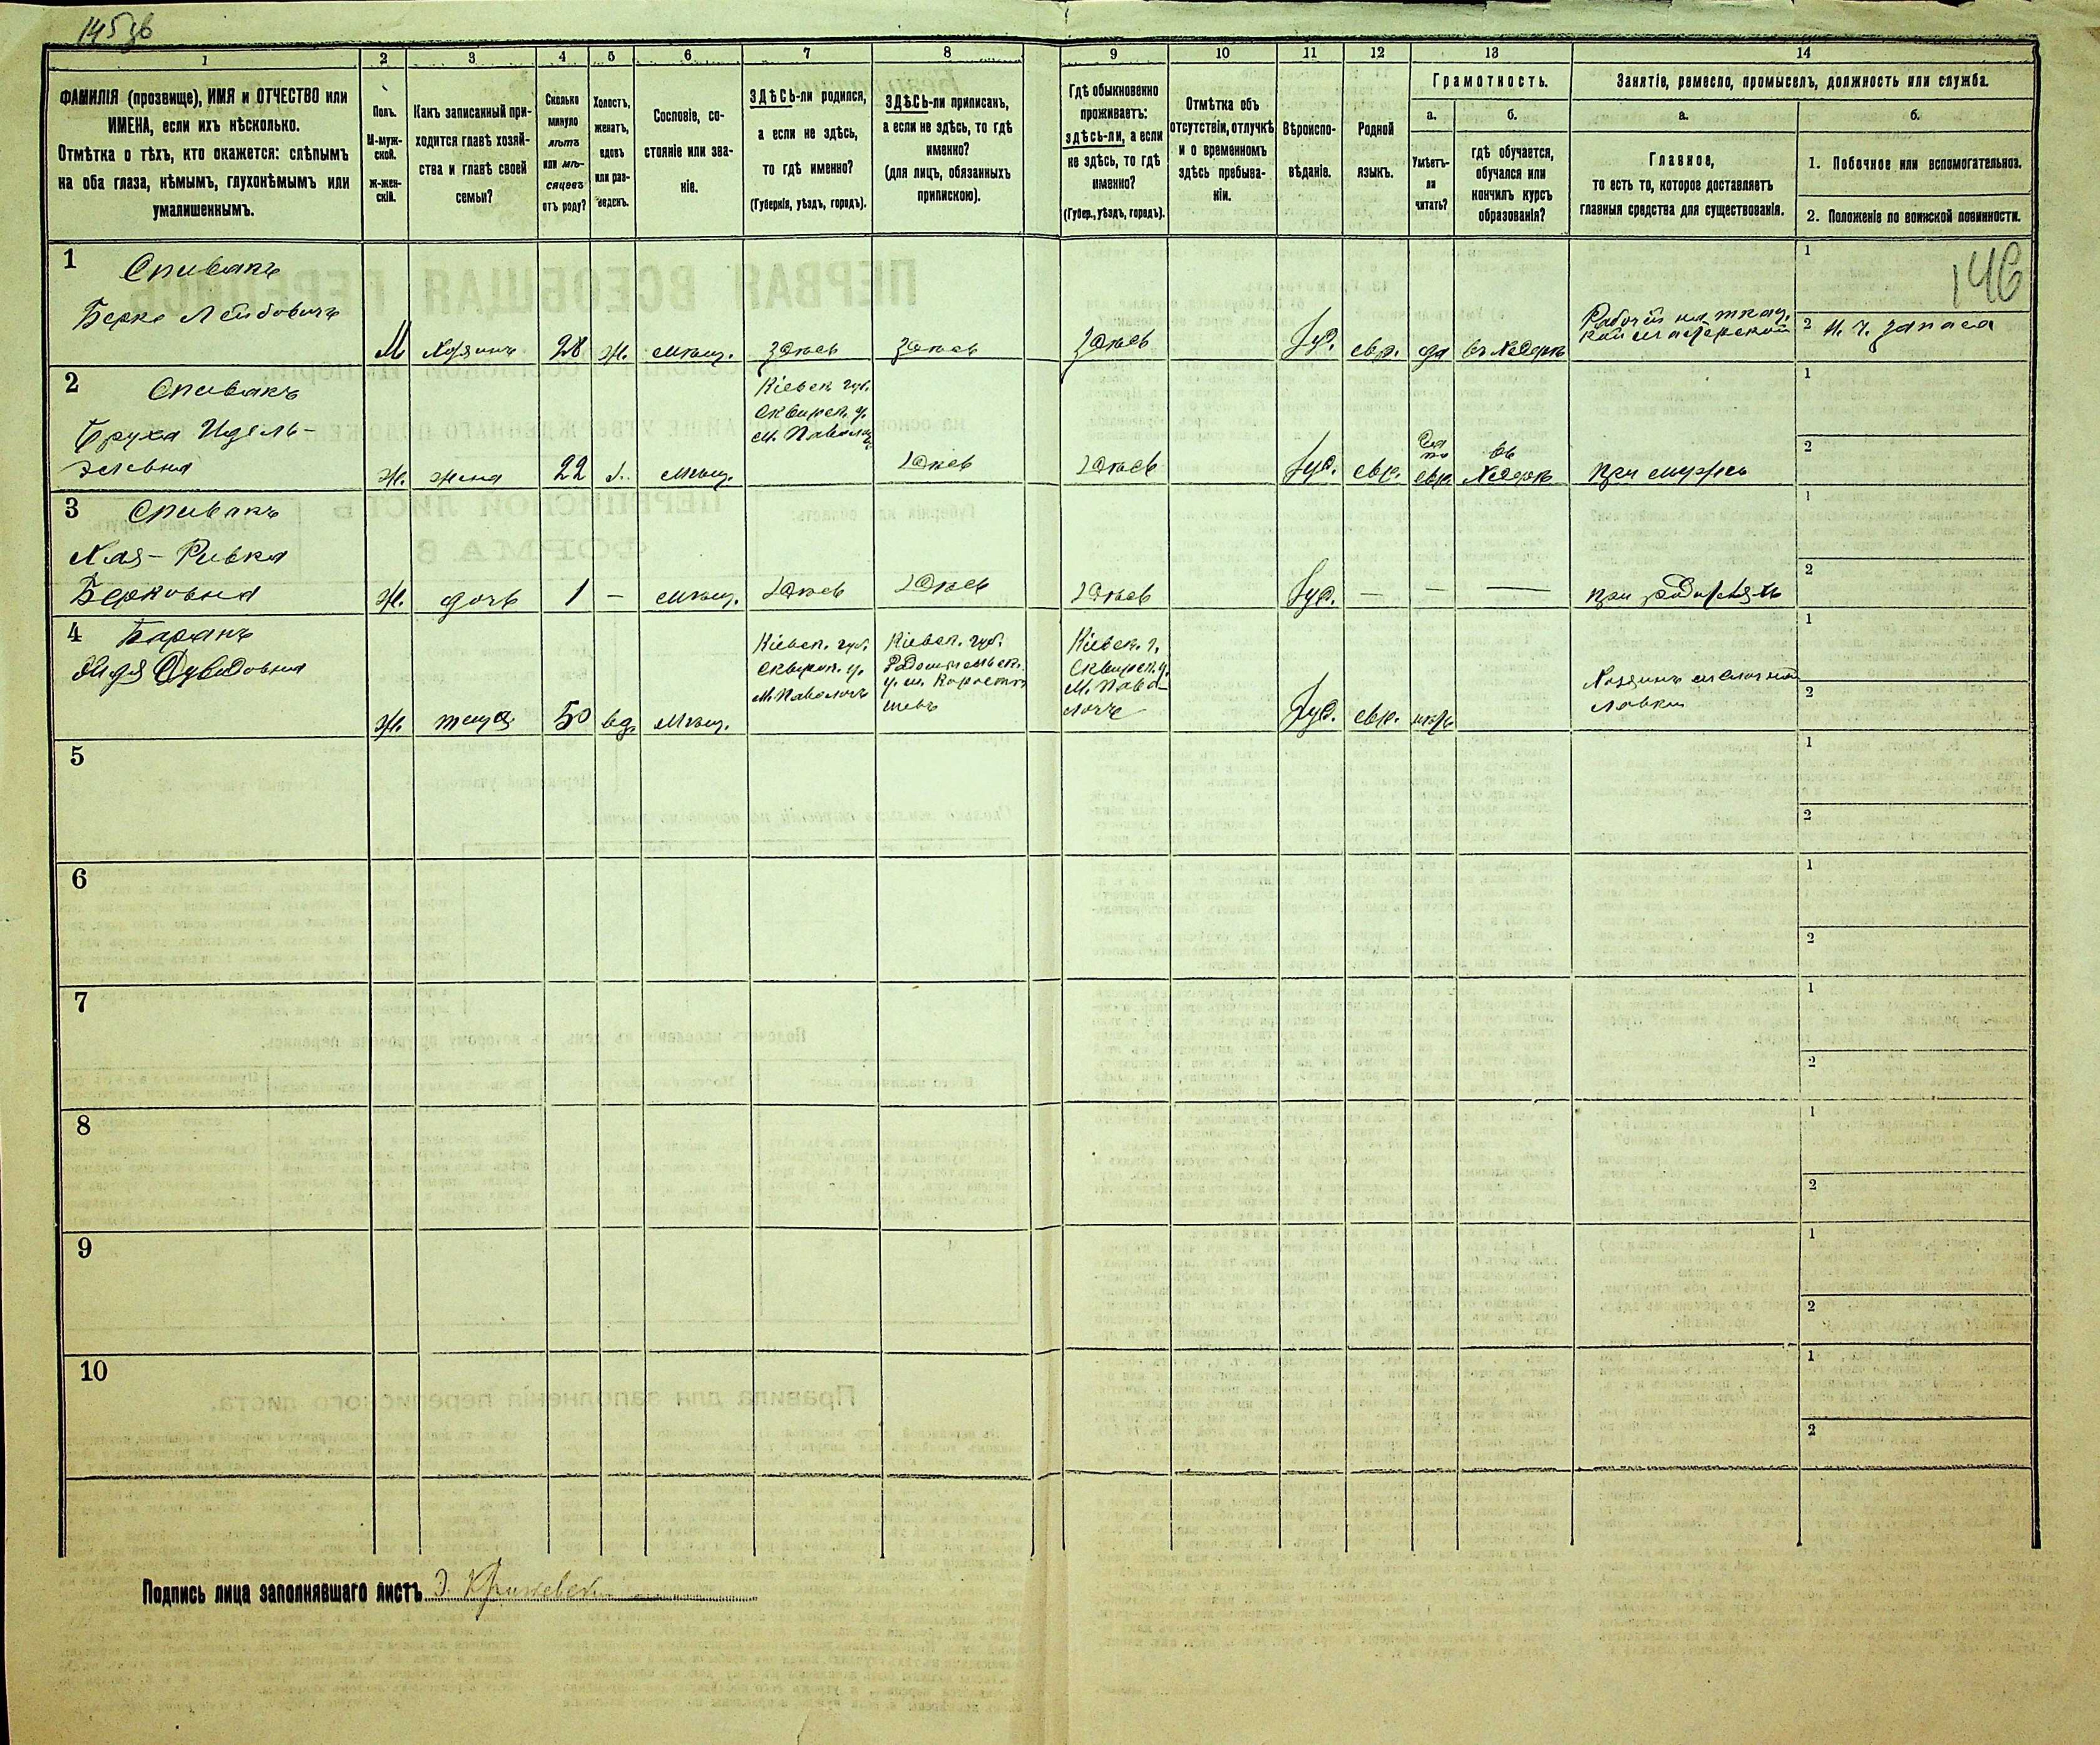 145 об
1 2 3 4 5 6 7 8 9 10 11 12 13 14
ФАМИЛІЯ (прозвище), ИМЯ и ОТЧЕСТВО или
ИМЕНА, если ихъ нѣсколько.
Отмѣтка о тѣхъ, кто окажется: слѣпымъ
на оба глаза, нѣмымъ, глухонѣмымъ или
умалишеннымъ.
Полъ.
М-муж-
ской.
ж-жен-
скій.
Какъ записанный при-
ходится главѣ хозяй-
ства и главѣ своей
семьи?
Сколько
минуло
лѣтъ
или мѣ-
сяцевъ
отъ роду?
Холостъ,
женатъ,
вдовъ
или раз-
веденъ.
Сословіе, со-
стояніе или зва-
ніе.
ЗДѢСЬ-ли родился,
а если не здѣсь,
то гдѣ именно?
(Губернія, уѣздъ, городъ).
ЗДѢСЬ-ли приписанъ,
а если не здѣсь, то гдѣ
именно?
(для лицъ, обязанныхъ
припискою).
Гдѣ обыкновенно
проживаетъ:
здѣсь-ли, а если
не здѣсь, то гдѣ
именно?
(Губер., уѣздъ, городъ).
Отмѣтка объ
отсутствіи, отлучкѣ
и о временномъ
здѣсь пребыва-
ніи.
Вѣроиспо-
вѣданіе.
Родной
языкъ.
Грамотность.
а.
Умѣетъ-
ли
читать?
б.
гдѣ обучается,
обучался или
кончилъ курсъ
образованія?
Занятіе, ремесло, промыселъ, должность или служба.
а.
Главное,
то есть то, которое доставляетъ
главныя средства для существованія.
б.
1. Побочное или вспомогательное.
2. Положеніе по воинской повинности.
146
1 Спивакъ
Берко Лейбовичъ
М Хозяинъ 28 ж. мѣщ. здѣсь здѣсь здѣсь Іуд. евр. да въ хедерѣ
Рабочій на ткац.
кой мастерской
1
2 И. ч. запаса
2 Спивакъ
Бруха Идель-
Ж. жена 22 мѣщ.
Кіевск. губ.
Сквирск. у.
м. Паволочь
здѣсь здѣсь Іуд. евр.
да
по
евр.
въ
хедерѣ
при мужѣ
1
2
3 Спивакъ
Хая-Ривка
Берковна
Ж. дочь 1 — мѣщ. здѣсь здѣсь здѣсь Іуд. — — — при родителяхъ
1
2
4 Баранъ
Давидовна
Ж. теща 50 вд. мѣщ.
Кіевск. губ.
Сквирск. у.
М. Паволочь
Кіевск. губ.
Радомысльск.
у. м. Коросты-
шевъ
Кіевск. г.
Сквирск. у.
М. Паво-
лочь
Іуд. евр. нѣтъ
Хозяинъ мелочной
лавки
1
2
5
1
2
6
1
2
7
1
2
8
1
2
9
1
2
10
1
2
Подпись лица заполнявшаго листъ